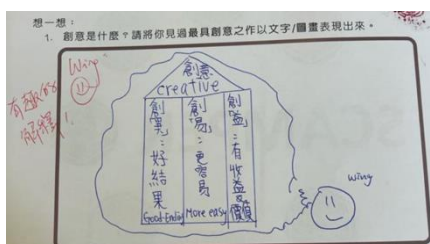 想一想：
1. 創意是什麼？請將你見過最具創意之作以文字/圖畫表現出來。
Wing
有趣的
解釋！
創意
creative
創異：好結果
Good-Ending
創易：更容易
More easy
創益：有收益及價值
wing